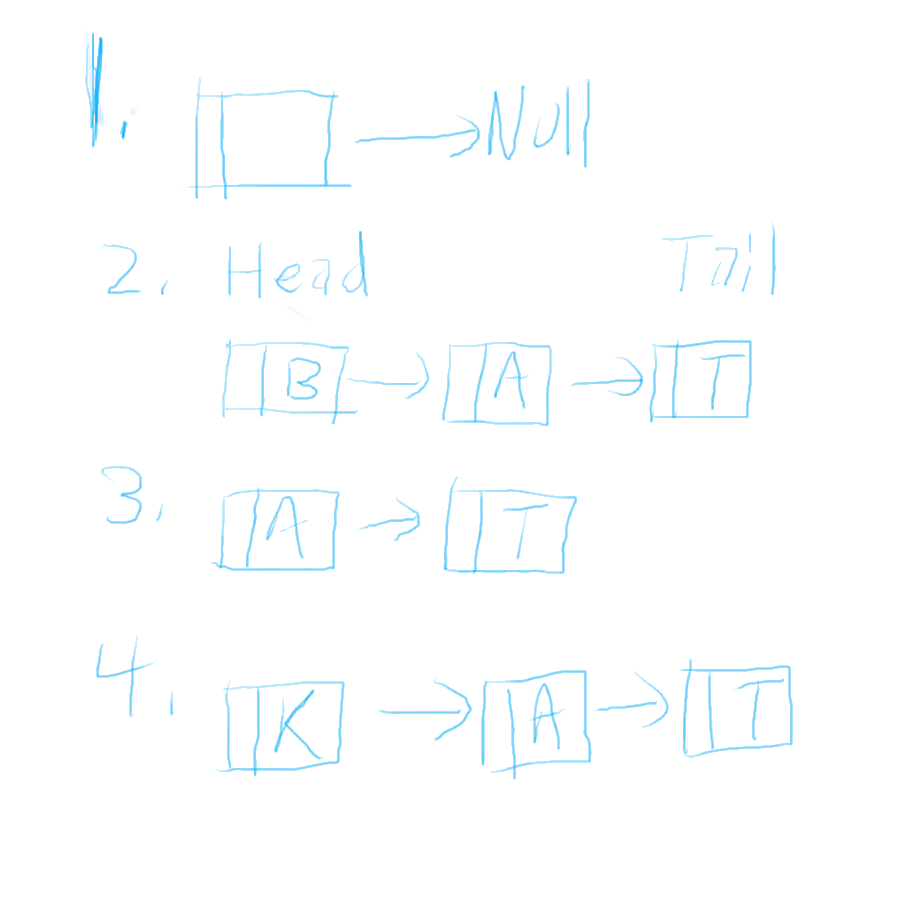 1. Null
2. Head Tail
B A T
3. A T
4. K A T